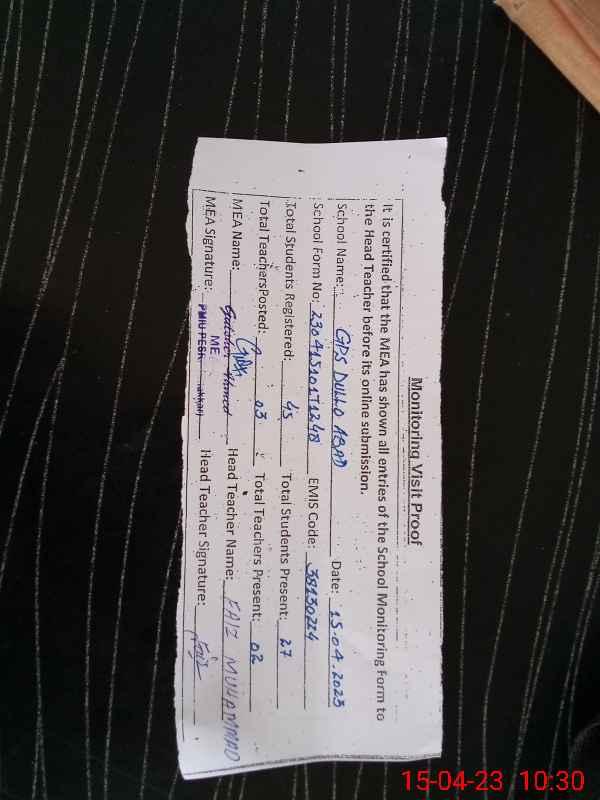 Monitoring Visit Proof
It is certified that the MEA has shown all entries of the School Monitoring Form to
the Head Teacher before its online submission.
School Name: GPS DULLO ABAD Date: 15-04-2023
School Form No: 230415101T1248 EMIS Code: 38130224
Total Students Registered: 45 Total Students Present: 27
Total TeachersPosted: 03 Total Teachers Present: 02
MEA Name: Ahmed Head Teacher Name: FAIZ MUHAMMAD
MEA Signature: ME Head Teacher Signature: Faiz
15-04-23 10:30